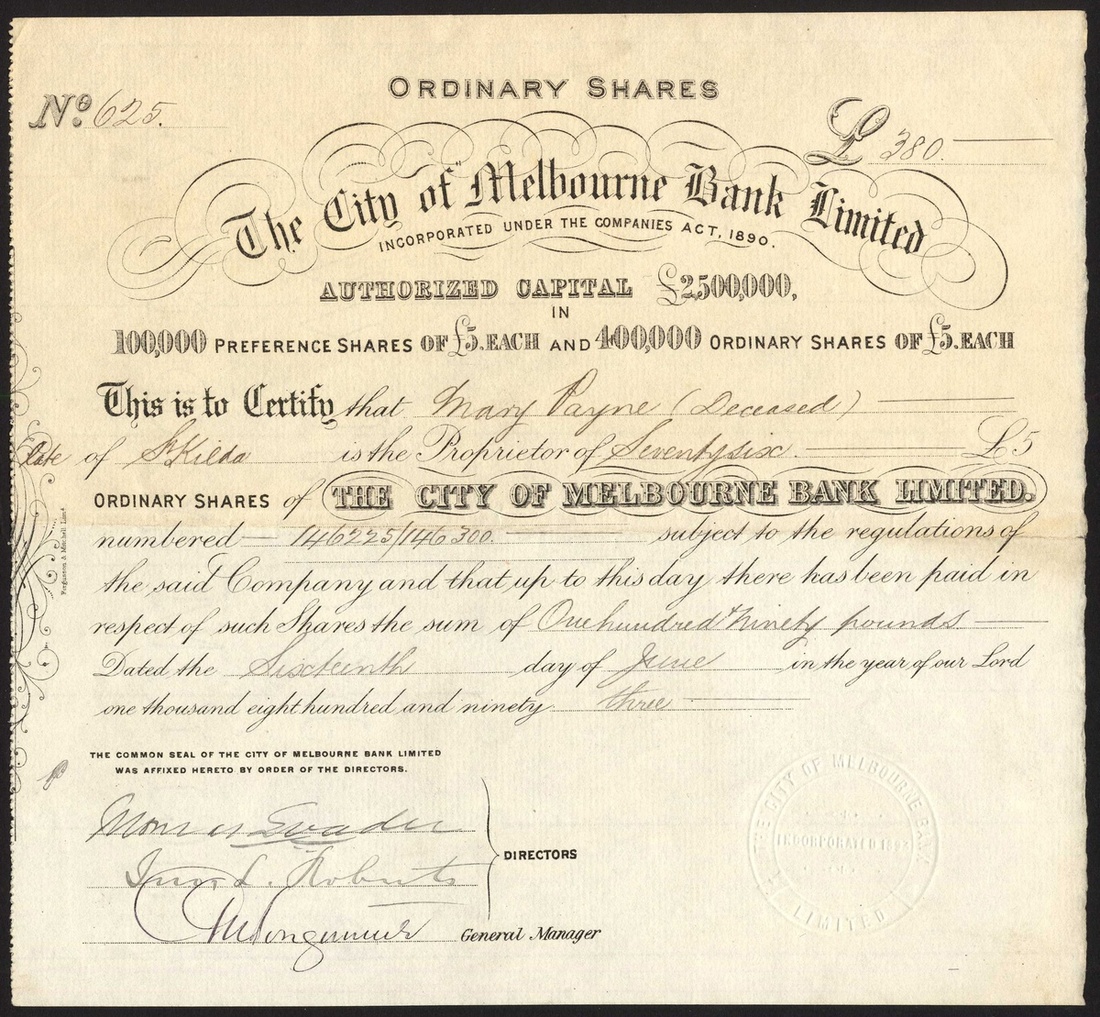 ORDINARY SHARES
No. 625.
£ 380.
The City of Melbourne Bank Limited
INCORPORATED UNDER THE COMPANIES ACT, 1890.
AUTHORIZED CAPITAL £2500,000,
IN
100,000 PREFERENCE SHARES OF £5. EACH AND 400,000 ORDINARY SHARES OF £5. EACH
This is to Certify that Mary Payne (Deceased)
late of St Kilda is the Proprietor of Seventy six. £5
ORDINARY SHARES of THE CITY OF MELBOURNE BANK LIMITED.
numbered 146225/146300. subject to the regulations of
the said Company and that up to this day there has been paid in
respect of such Shares the sum of One hundred & Ninety pounds
Dated the Sixteenth day of June in the year of our Lord
one thousand eight hundred and ninety three
Fergusson & Mitchell Limd
THE COMMON SEAL OF THE CITY OF MELBOURNE BANK LIMITED
WAS AFFIXED HERETO BY ORDER OF THE DIRECTORS.
Roberts
DIRECTORS
General Manager
THE CITY OF MELBOURNE BANK
INCORPORATED
LIMITED